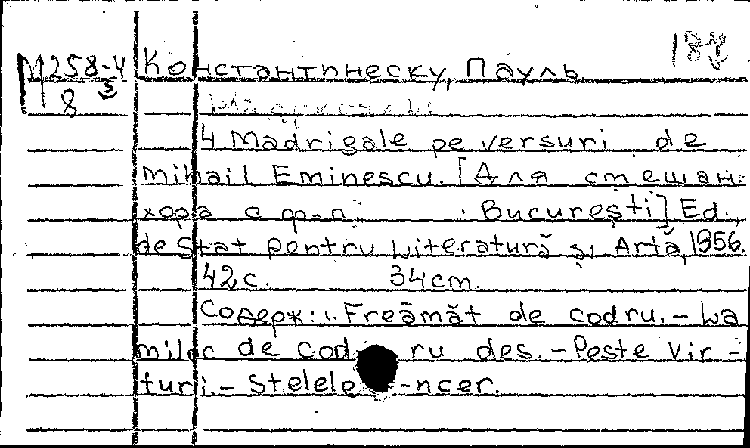 М258-4 Константинеску, Пауль
8
4 Madrigale pe versuri de
Mihail Eminescu. [Для смешан.
хора с ф-п. Bucureşti] Ed.
de Stat pentru Literatură şi Artă, 1956.
42 с. 34 cm.
Содерж.: Freămăt de codru. – La
mijloc de codru des. – Peste vir-
furi. – Stelele -n cer.